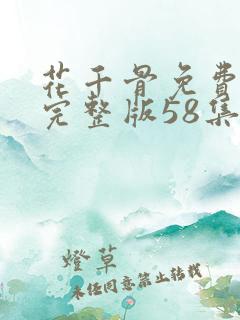 花千骨免费
完整版58集
燈草
未经同意禁止转载